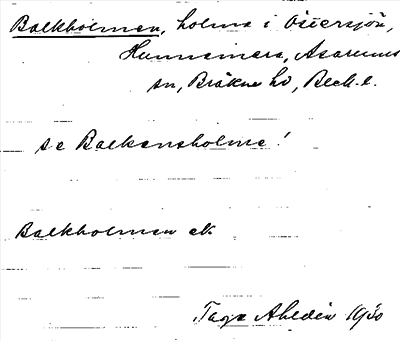 Balkholmen, holme i Östersjön,
Hunnemara, Asarums
sn, Bräkne hd, Blek. l.
se Balkensholme!
Balkholmen ek
Tage Ahldén 1950